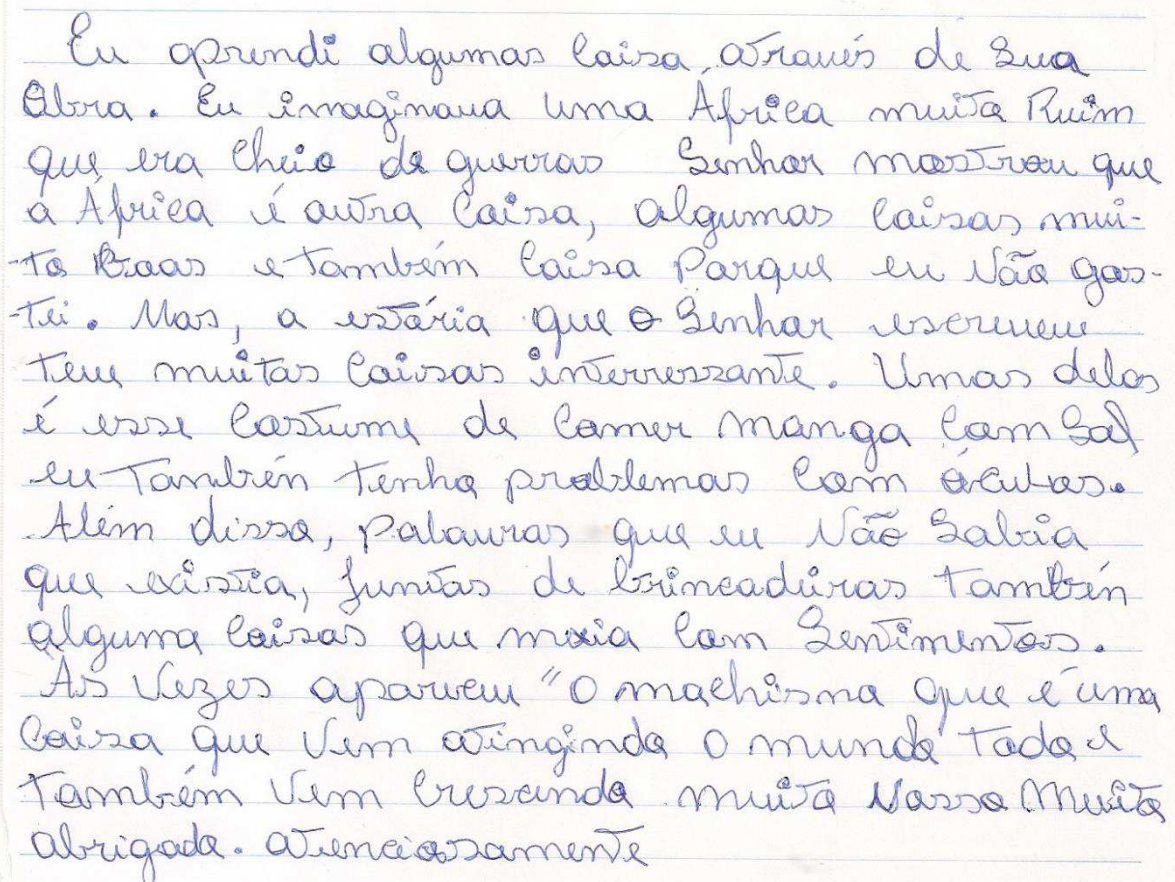 Eu aprendi algumas Coisa, através de Sua
Obra. Eu imaginava uma África muito Ruim
que era Cheio de guerras Senhor mostrou que
a África é outra Coisa, algumas coisas mui-
-to Boas e também Coisa Porque eu Não gos-
-tei. Mas, a estória que o Senhor escreveu
teve muitas Coisas interressante. Umas delas
é esse Costume de Comer manga Com Sal
eu Tambén Tenho problemas Com óculos.
Além disso, palavras que eu Não Sabia
que existia, Juntas de brincadeiras Tambén
alguma Coisas que mexia Com Sentimentos.
Às Vezes apareceu "O machismo que é uma
Coisa que Vem atingindo O mundo Todo e
Também Vem Crescendo muito Nossa Muito
obrigado. atenciosamente